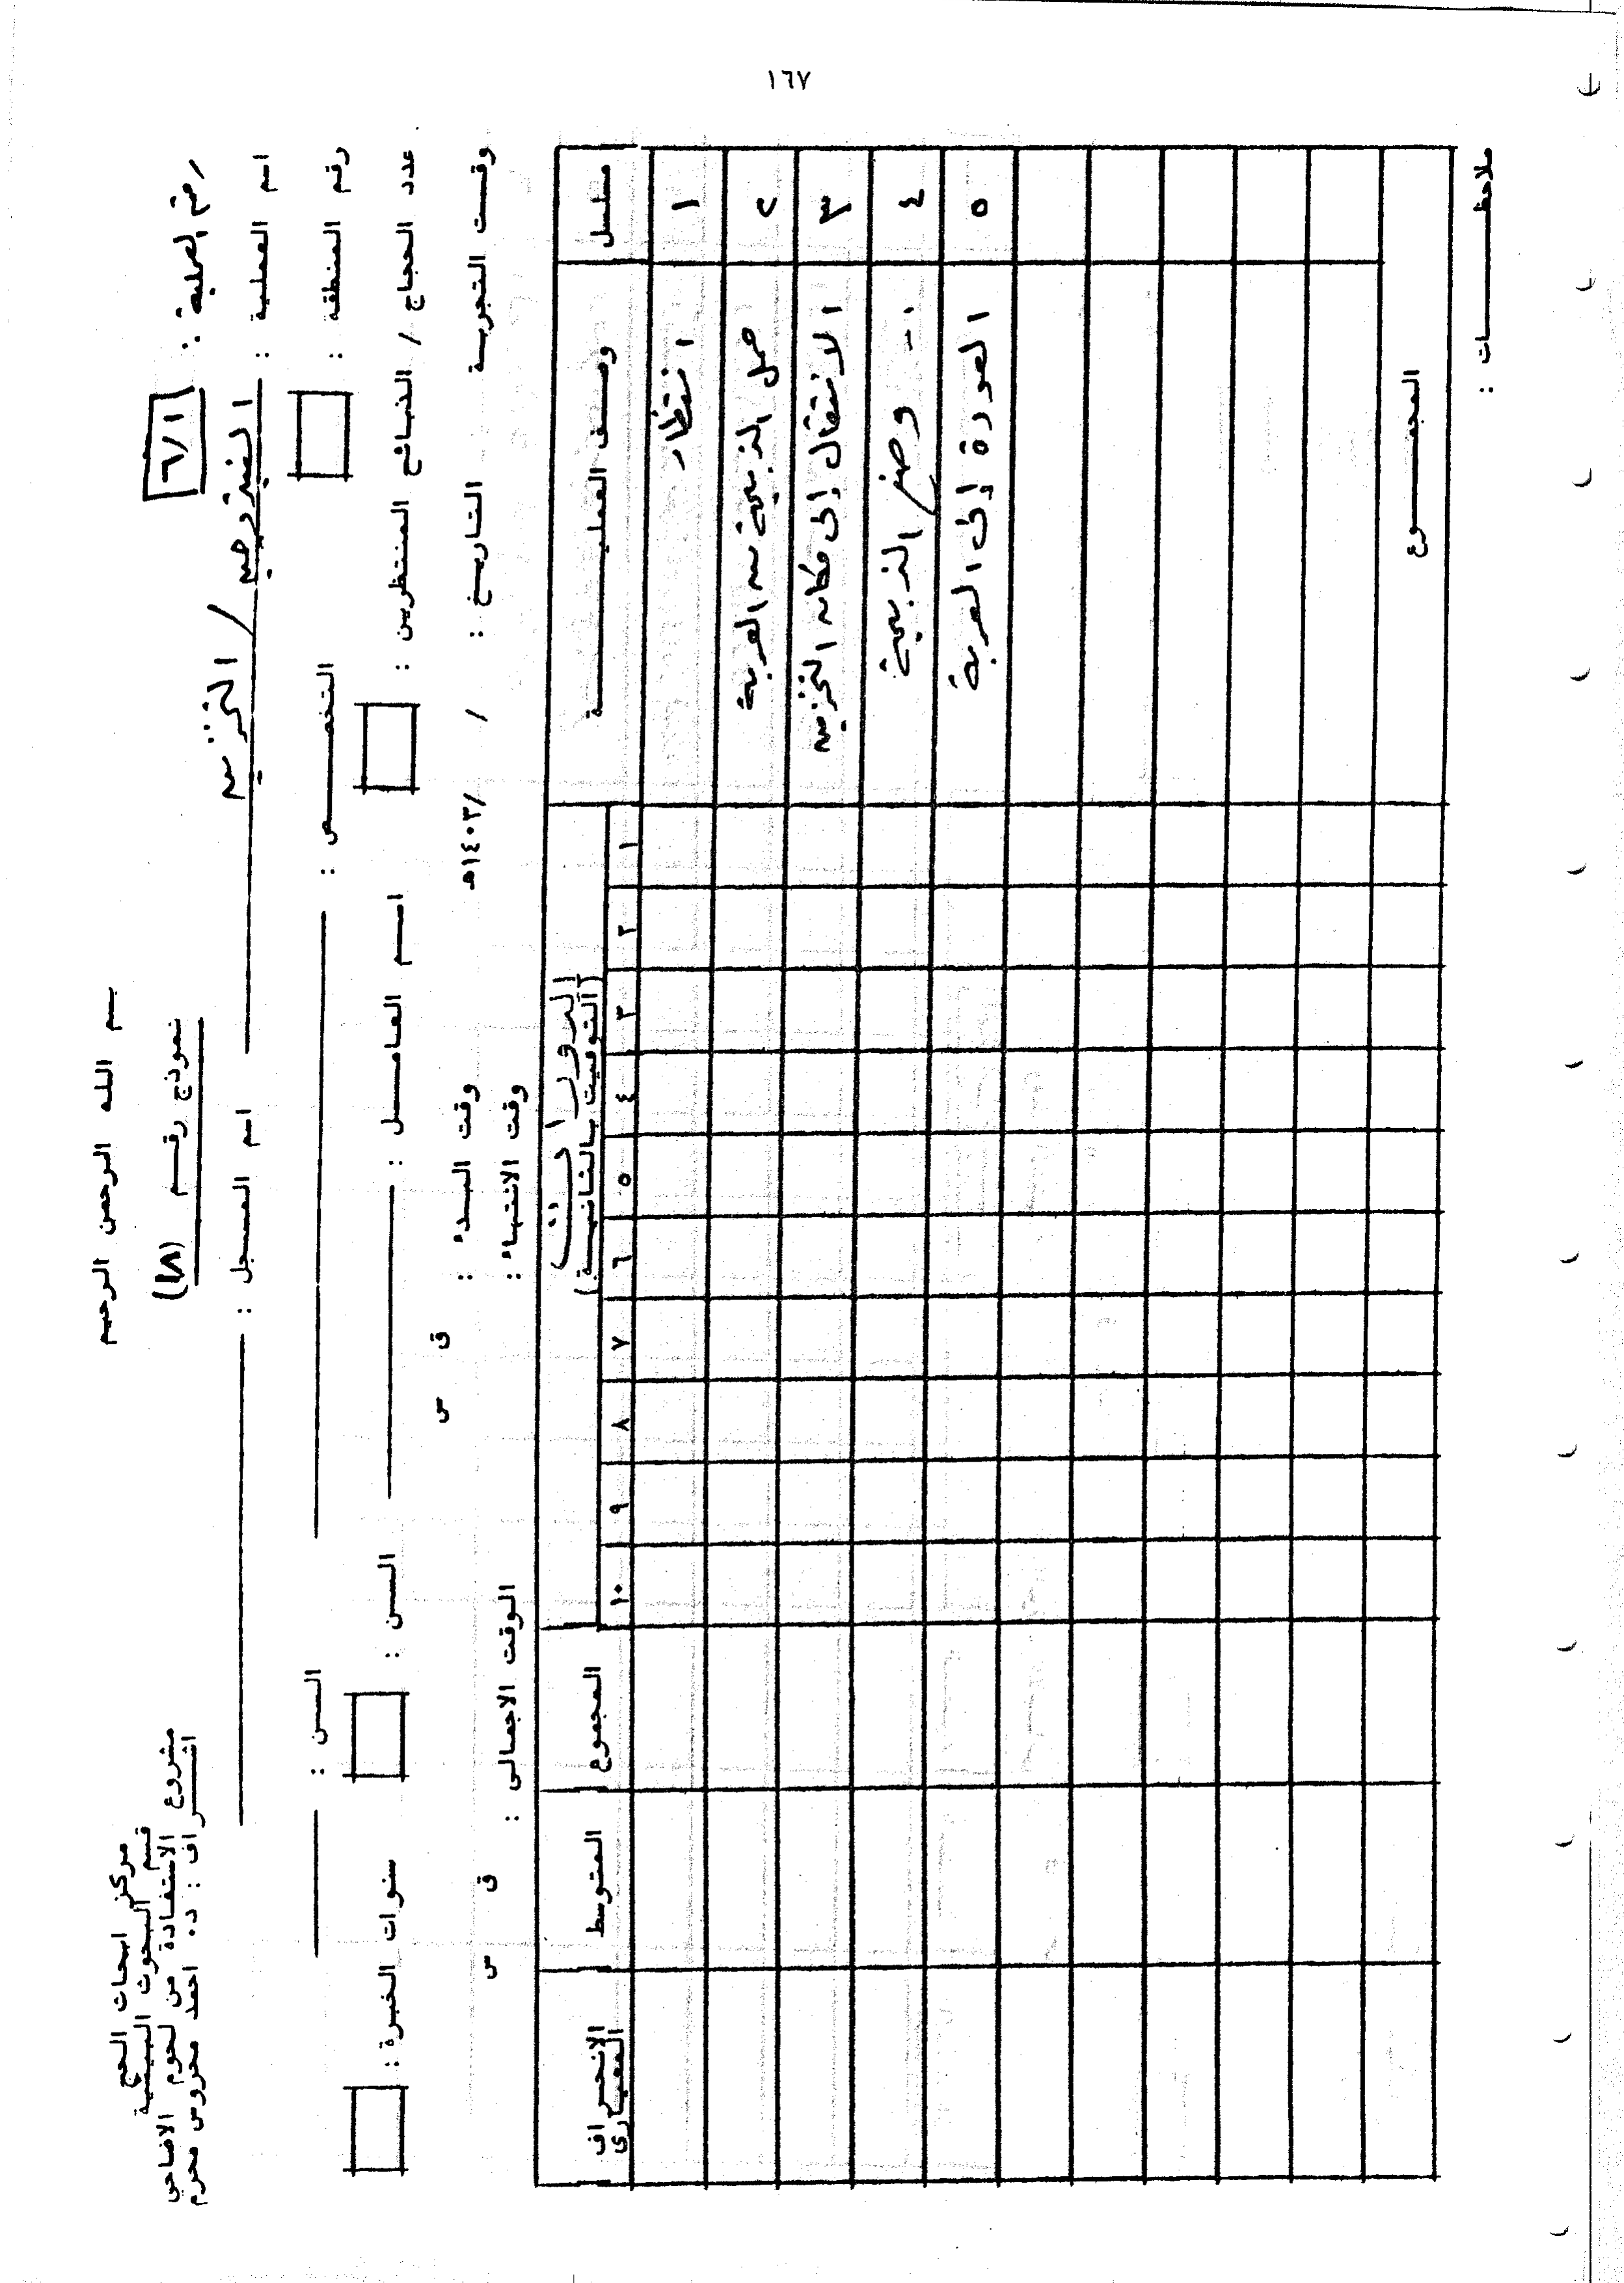 ١٦٧
بسم الله الرحمن الرحيم
مركز ابحاث الحج
قسم البحوث البيئية
مشروع الاستفادة من لحوم الاضاحي
اشراف : د. احمد محروس محرم
نموذج رقم (١٨)
رقم العملية : ٦/١
اسم العملية : / التخزين
اسم المسجل :
رقم المنطقة :
التخصص :
السن :
عدد الحجاج / الذبائح المنتظرين :
اسم العامل :
السن :
سنوات الخبرة :
وقت التجربة
التاريخ : / /١٤٠٣هـ
وقت البدء : ق س
وقت الانتهاء :
الوقت الاجمالى : ق س
مسلسل وصف العمليـة الدورات (التوقيت بالثانية) المجموع المتوسط الانحراف المعيارى
١ ٢ ٣ ٤ ٥ ٦ ٧ ٨ ٩ ١٠
١ انتظار
٢ حمل الذبيحة من العربة
٣ الانتقال إلى مكان التخزين
٤ وضع الذبيحة
٥ العودة إلى العربة
المجموع
ملاحظات :